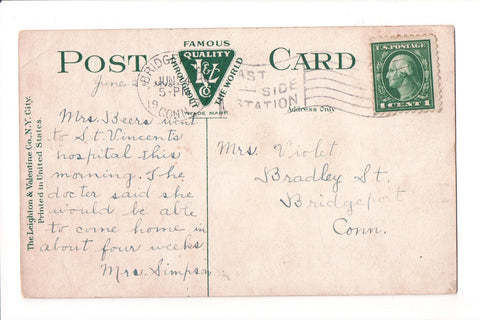 FAMOUS
QUALITY
THROUGHOUT THE WORLD
L&V
CO
TRADE MARK
POST CARD
U.S. POSTAGE
1 CENT 1
BRIDGEP
JUN
5-P
19
CON
EAST
SIDE
STATION
Address Only
June
Mrs. Beers went
to St. Vincents
hospital this
morning. The
docter said she
would be able
to come home in
about four weeks
Mrs. Simpson
Mrs. Violet
Bradley St.
Bridgeport
Conn.
The Leighton & Valentine Co., N.Y. City.
Printed in United States.